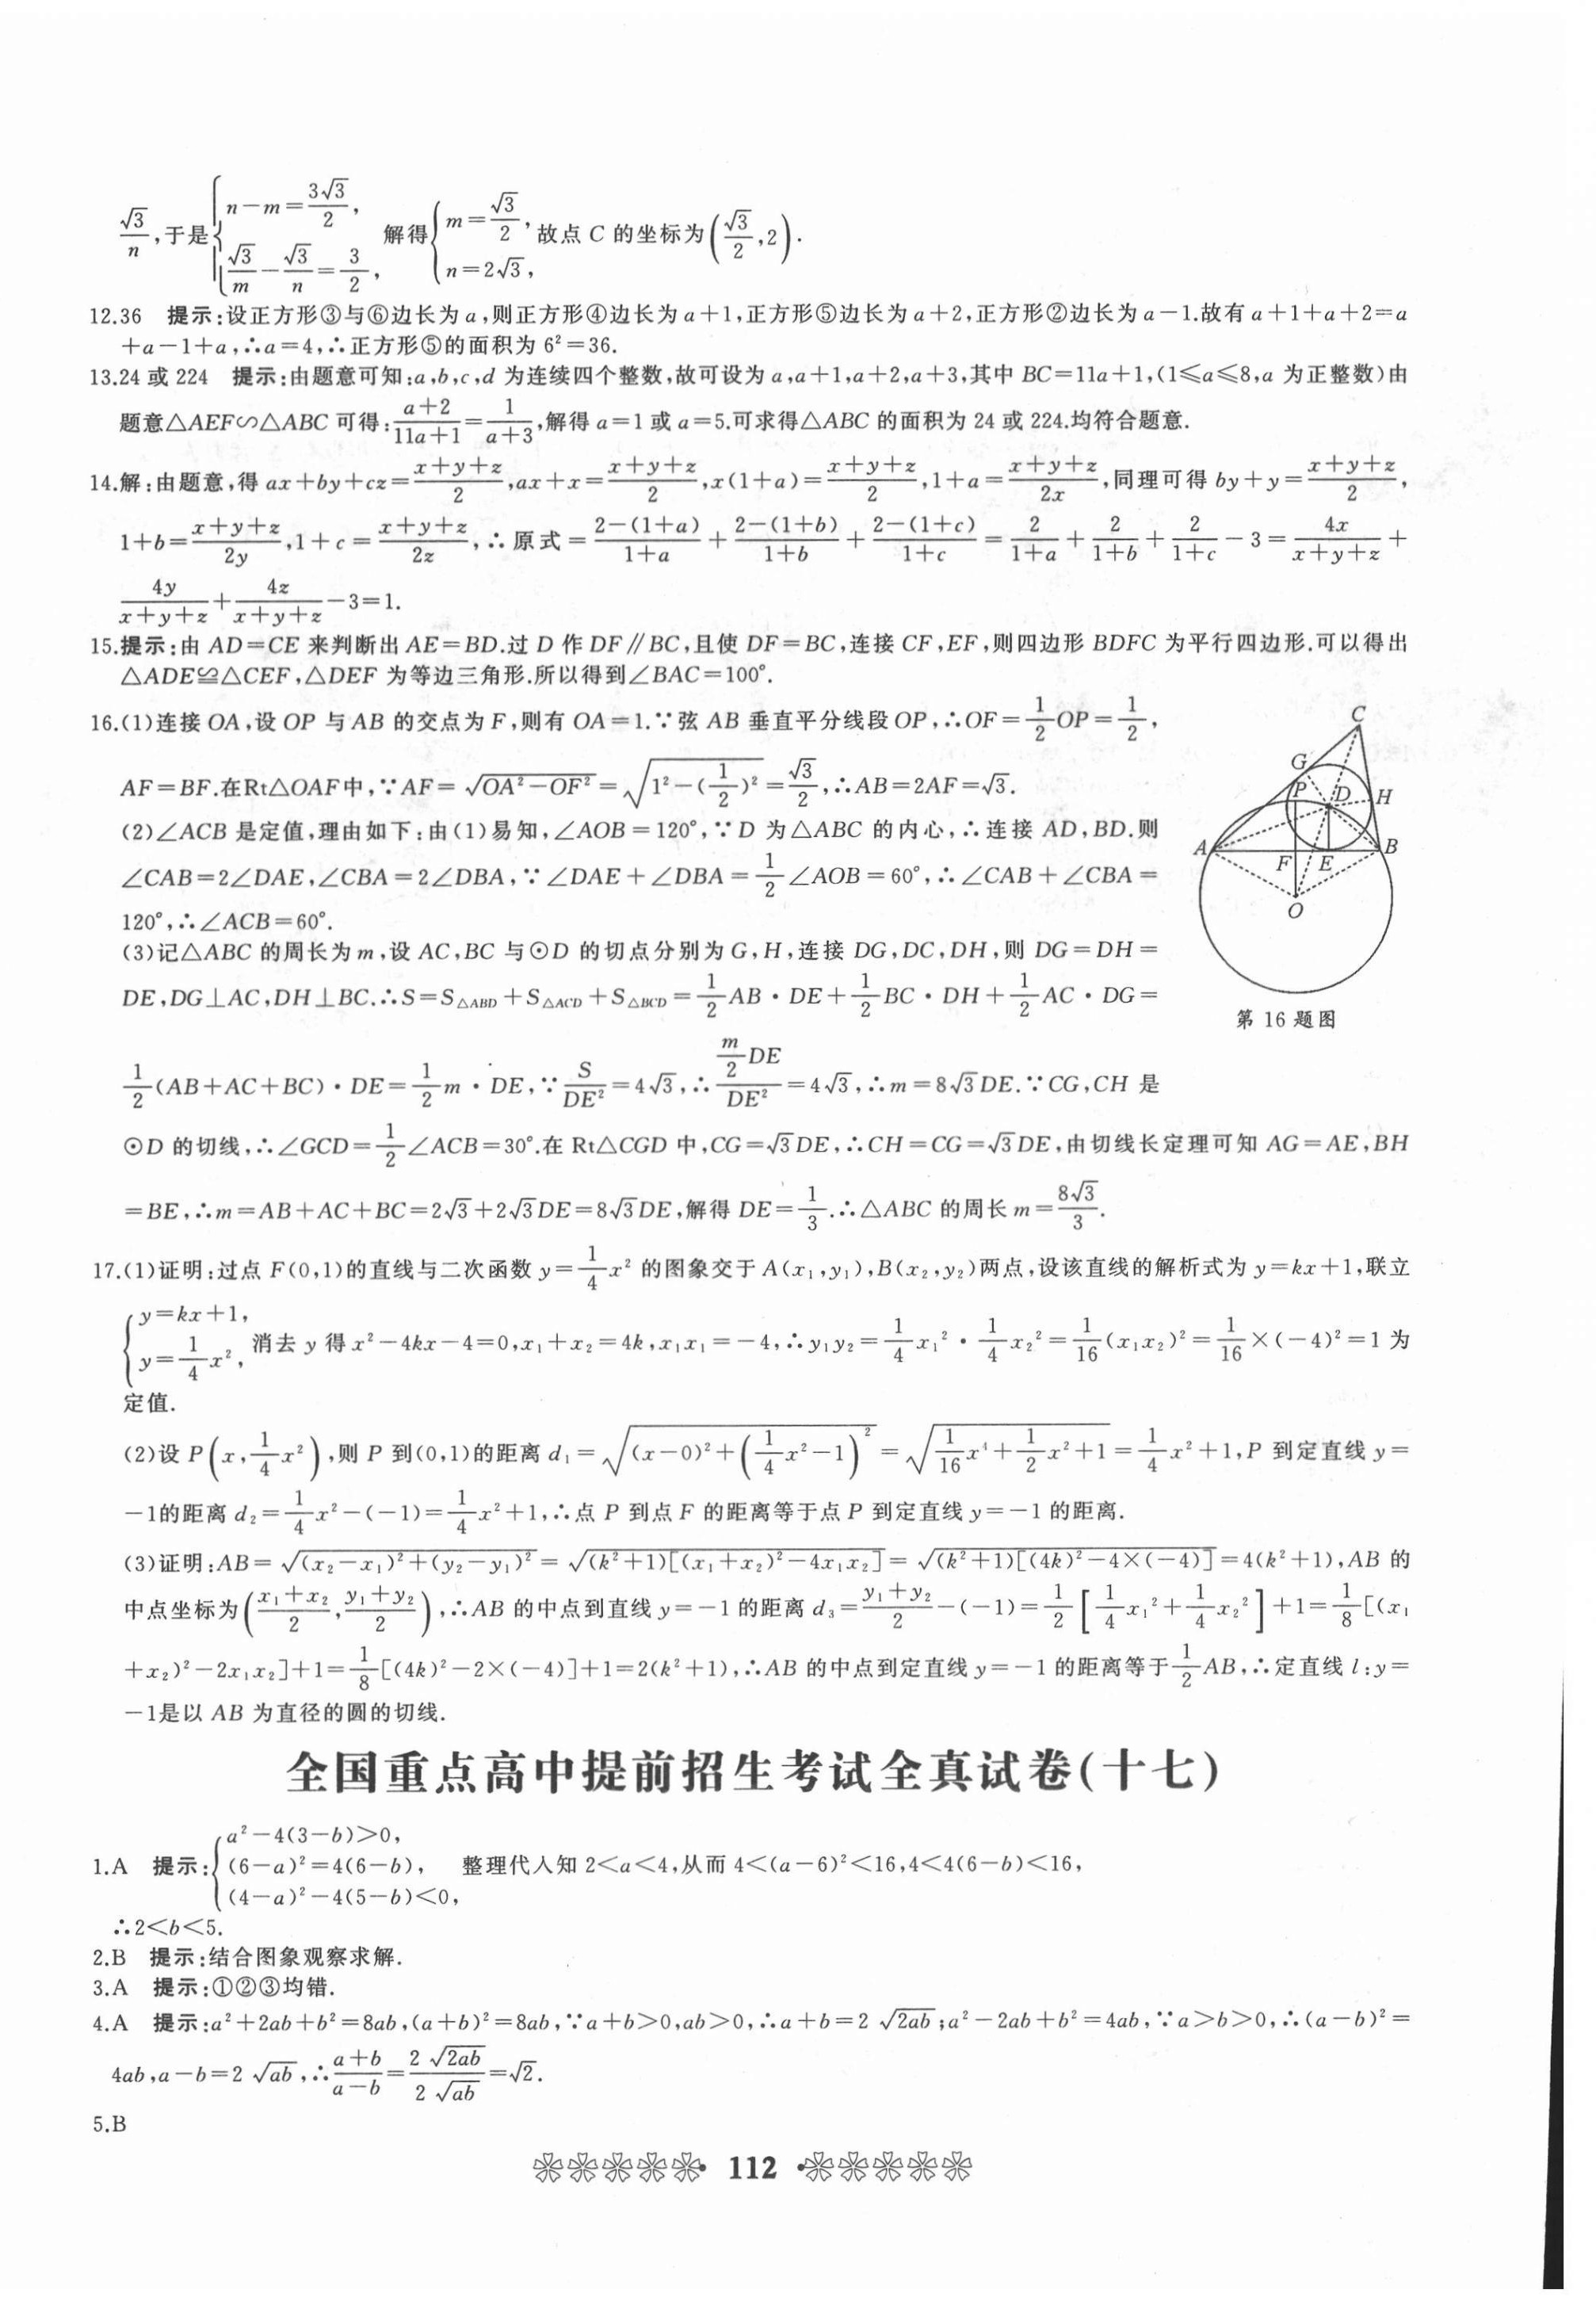 √3/n,于是{n−m=3√3/2, √3/m−√3/n=3/2, 解得{m=√3/2, n=2√3, 故点 C 的坐标为(√3/2,2).
12.36 提示:设正方形③与⑥边长为 a,则正方形④边长为 a+1,正方形⑤边长为 a+2,正方形②边长为 a−1.故有 a+1+a+2=a
+a−1+a,∴a=4,∴正方形⑤的面积为 6²=36.
13.24 或 224 提示:由题意可知:a,b,c,d 为连续四个整数,故可设为 a,a+1,a+2,a+3,其中 BC=11a+1,(1⩽a⩽8,a 为正整数)由
题意△AEF∽△ABC 可得:(a+2)/(11a+1)=1/(a+3),解得 a=1 或 a=5.可求得△ABC 的面积为 24 或 224.均符合题意.
14.解:由题意,得 ax+by+cz=(x+y+z)/2,ax+x=(x+y+z)/2,x(1+a)=(x+y+z)/2,1+a=(x+y+z)/2x,同理可得 by+y=(x+y+z)/2,
1+b=(x+y+z)/2y,1+c=(x+y+z)/2z,∴原式=(2−(1+a))/(1+a)+(2−(1+b))/(1+b)+(2−(1+c))/(1+c)=2/(1+a)+2/(1+b)+2/(1+c)−3=4x/(x+y+z)+
4y/(x+y+z)+4z/(x+y+z)−3=1.
15.提示:由 AD=CE 来判断出 AE=BD.过 D 作 DF∥BC,且使 DF=BC,连接 CF,EF,则四边形 BDFC 为平行四边形.可以得出
△ADE≌△CEF,△DEF 为等边三角形.所以得到∠BAC=100°.
16.(1)连接 OA,设 OP 与 AB 的交点为 F,则有 OA=1.∵弦 AB 垂直平分线段 OP,∴OF=1/2OP=1/2,
AF=BF.在Rt△OAF中,∵AF=√(OA²−OF²)=√(1²−(1/2)²)=√3/2,∴AB=2AF=√3.
(2)∠ACB 是定值,理由如下:由(1)易知,∠AOB=120°,∵D 为△ABC 的内心,∴连接 AD,BD.则
∠CAB=2∠DAE,∠CBA=2∠DBA,∵∠DAE+∠DBA=1/2∠AOB=60°,∴∠CAB+∠CBA=
120°,∴∠ACB=60°.
(3)记△ABC 的周长为 m,设 AC,BC 与⊙D 的切点分别为 G,H,连接 DG,DC,DH,则 DG=DH=
DE,DG⊥AC,DH⊥BC.∴S=S△ABD+S△ACD+S△BCD=1/2AB·DE+1/2BC·DH+1/2AC·DG=
1/2(AB+AC+BC)·DE=1/2m·DE,∵S/DE²=4√3,∴(m/2DE)/DE²=4√3,∴m=8√3DE.∵CG,CH 是
⊙D 的切线,∴∠GCD=1/2∠ACB=30°.在 Rt△CGD 中,CG=√3DE,∴CH=CG=√3DE,由切线长定理可知 AG=AE,BH
=BE,∴m=AB+AC+BC=2√3+2√3DE=8√3DE,解得 DE=1/3.∴△ABC 的周长 m=8√3/3.
C
G
P
D
H
A
F
E
B
O
第 16 题图
17.(1)证明:过点 F(0,1)的直线与二次函数 y=1/4x² 的图象交于 A(x₁,y₁),B(x₂,y₂)两点,设该直线的解析式为 y=kx+1,联立
{y=kx+1, y=1/4x², 消去 y 得 x²−4kx−4=0,x₁+x₂=4k,x₁x₁=−4,∴y₁y₂=1/4x₁²·1/4x₂²=1/16(x₁x₂)²=1/16×(−4)²=1 为
定值.
(2)设 P(x,1/4x²),则 P 到(0,1)的距离 d₁=√((x−0)²+(1/4x²−1)²)=√(1/16x⁴+1/2x²+1)=1/4x²+1,P 到定直线 y=
−1的距离 d₂=1/4x²−(−1)=1/4x²+1,∴点 P 到点 F 的距离等于点 P 到定直线 y=−1 的距离.
(3)证明:AB=√((x₂−x₁)²+(y₂−y₁)²)=√((k²+1)[(x₁+x₂)²−4x₁x₂])=√((k²+1)[(4k)²−4×(−4)])=4(k²+1),AB 的
中点坐标为((x₁+x₂)/2,(y₁+y₂)/2),∴AB 的中点到直线 y=−1 的距离 d₃=(y₁+y₂)/2−(−1)=1/2[1/4x₁²+1/4x₂²]+1=1/8[(x₁
+x₂)²−2x₁x₂]+1=1/8[(4k)²−2×(−4)]+1=2(k²+1),∴AB 的中点到定直线 y=−1 的距离等于1/2AB,∴定直线 l:y=
−1是以 AB 为直径的圆的切线.
全国重点高中提前招生考试全真试卷(十七)
1.A 提示:{a²−4(3−b)>0, (6−a)²=4(6−b), (4−a)²−4(5−b)<0, 整理代人知 2<a<4,从而 4<(a−6)²<16,4<4(6−b)<16,
∴2<b<5.
2.B 提示:结合图象观察求解.
3.A 提示:①②③均错.
4.A 提示:a²+2ab+b²=8ab,(a+b)²=8ab,∵a+b>0,ab>0,∴a+b=2√(2ab);a²−2ab+b²=4ab,∵a>b>0,∴(a−b)²=
4ab,a−b=2√(ab),∴(a+b)/(a−b)=2√(2ab)/2√(ab)=√2.
5.B
112